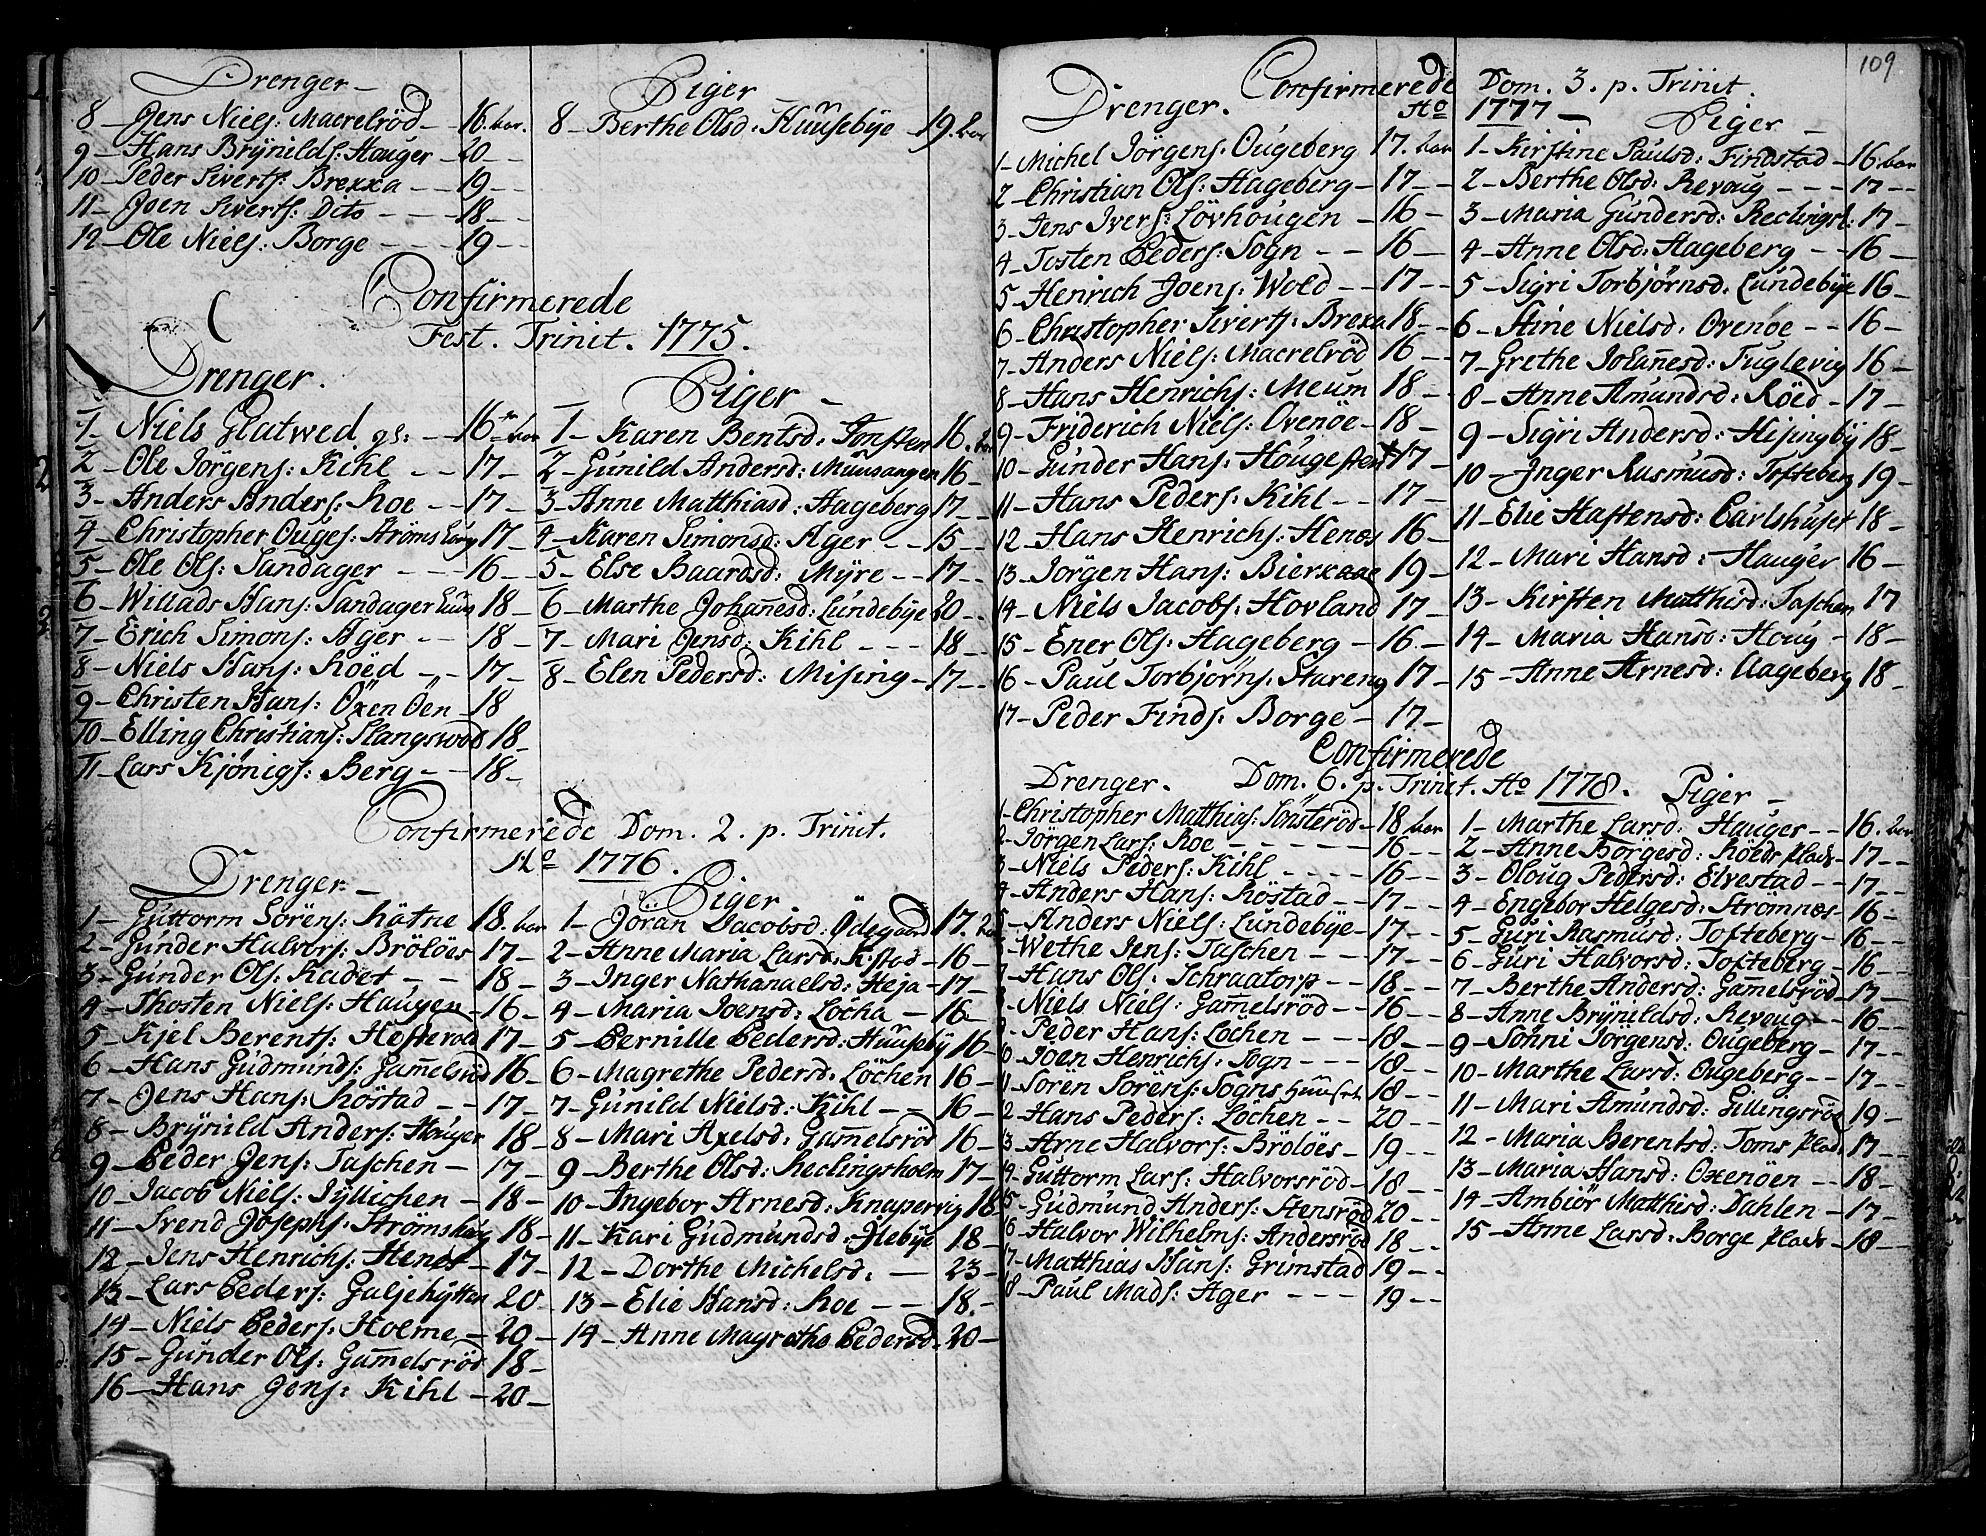 Drenger
8 - Jens Niels: Macrelröd - 16. aar.
9 - Hans Brÿnilds: Houger - 20 - -
10 - Peder Siverts: Brekka - - 19 - -
11 - Joen Siverts: Dito - - - 18 - -
12 - Ole Niels: Borge - - - 19 - -
Piger
8 - Berthe Olsd: Huusebÿe - 19. aar
Confirmerede
Fest. Trinit. 1775.
Drenger.
1 - Niels Glatwed gs: - - 16 aar
2 - Ole Jörgens: Kihl - - 17 -
3 - Anders Anders: Roe - - 17 -
4 - Christopher Ouges: Strömshoug 17 -
5 - Ole Ols: Sandager - - - 16 - -
6 - Willads Hans: Sandager 18 -
7 - Erich Simons: Ager - - 18 -
8 - Niels Hans: Röed - - 17 -
9 - Christen Hans: Öxen Öen - 18
10 - Elling Christians: Slangswold 18 -
11 - Lars Kjönigs: Berg - - 18 -
Piger -
1 - Karen Bentsd: Tonsten 16. aar
2 - Gunild Andersd: Muusangen 16 -
3 - Anne Matthiasd: Hageberg 17 - -
4 - Karen Simonsd: Ager - - 15 - -
5 - Else Baardsd: Mÿre - - 17 - -
6 - Marthe Johan̄esd: Lundebÿe 20 - -
7 - Mari Jensd: Kihl - - - 18 - -
8 - Elen Pedersd: Mising - 17 - -
Confirmerede Dom. 2. p. Trinit.
Ao 1776.
Drenger -
1 - Guttorm Sörens: Kätne 18. aar
2 - Gunder Halvors: Brölöes 17 -
3 - Gunder Ols: Kadet - - 18 -
4 - Thosten Niels: Haugen - 16 -
5 - Kjel Berents: Hesterød 17 -
6 - Hans Gudmunds: Gam̄elsröd 16 -
7 - Jens Hans: Röstad - - 17 -
8 - Brÿnild Anders: Houger 18 -
9 - Peder Jens: Taschen - 17 -
10 - Jacob Niels: Tÿllichen - 18 -
11 - Svend Josephs: Strömshoug 18 -
12 - Jens Henrichs: Henes - 17 -
13 - Lars Peders: Galjehÿtten 20 -
14 - Niels Peders: Holme - 20 -
15 - Gunder Ols: Gam̄elsröd 18 -
16 - Hans Jens: Kihl - 20 -
Piger
1 - Jöran Jacobsd: Ödegaard 17. aar
2 - Anne Maria Larsd: Kistad - 16 -
3 - Inger Nathanaelsd: Heja - 17 -
4 - Maria Joensd: Löcha - 16 -
5 - Pernille Pedersd: Huusebÿ 16 -
6 - Magrethe Pedersd: Löchen 16 -
7 - Gunild Nielsd: Kihl - - 16 -
8 - Mari Axelsd: Gam̄elsröd 16 -
9 - Berthe Olsd: Reclingsholm 17 -
10 - Ingebor Arnesd: Knapervig 18
11 - Kari Gudmundsd: Ilebÿe 18 -
12 - Dorthe Michelsd: - 23 -
13 - Elie Hansd: Roe - - 18. -
14 - Anne Magrethe Pedersd. 20 -
109
Confirmerede Dom. 3. p. Trinit.
Ao 1777 -
Drenger.
1 - Michel Jörgens: Ougeberg 17. aar
2 - Christian Ols: Hageberg - 17 - -
3 - Jens Ivers: Lövhougen - 16 -
4 - Tosten Peders: Sogn - - 16 - -
5 - Henrich Joens: Wold - - 17 - -
6 - Christopher Siverts: Brekka 18 - -
7 - Anders Niels: Macrelröd 16 - -
8 - Hans Henrichs: Meum 18 - -
9 - Friderich Niels: Ovenöe - 18 -
10 - Gunder Hans: Hougesten 17 -
11 - Hans Peders: Kihl - - 17 -
12 - Hans Henrichs: Henes 16 -
13 - Jörgen Hans: Bierkaae 19 -
14 - Niels Jacobs: Hovland 17 -
15 - Ener Ols: Hageberg - 16 -
16 - Paul Torbjörns: Hareng 17 -
17 - Peder Finds: Borge - 17 -
Piger -
1 - Kirstine Paulsd: Findstad - 16 aar
2 - Berthe Olsd: Revoug - - - 17 - -
3 - Maria Gundersd: Reclingsh: 17 -
4 - Anne Olsd: Hageberg - - 16 -
5 - Sigri Torbjörnsd: Lundebÿe 16 -
6 - Stine Nielsd: Ovenöe - - 16 -
7 - Grethe Johan̄esd: Fuglevig 16 -
8 - Anne Amundsd: Röed - 17 -
9 - Sigri Andersd: Hisingbÿ 18 -
10 - Inger Rasmusd: Tofteberg 19 -
11 - Elie Hastensd: Carlshuset 18 -
12 - Mari Hansd: Hauger 16 -
13 - Kirsten Matthisd: Taschen 17
14 - Maria Hansd: Houg - 18 -
15 - Anne Arnesd: Aageberg 18 -
Confirmerede
Dom. 6. p. Trinit. Ao 1778.
Drenger.
1 - Christopher Matthias: Tönsteröd - 18 aar
2 - Jörgen Lars: Roe - - - - - - 16 - -
3 - Niels Peders: Kihl - - - - 16 - -
4 - Anders Hans: Röstad - - 17 - -
5 - Anders Niels: Lundebÿe - 17 - -
6 - Wethe Jens: Taschen - - - 17 - -
7 - Hans Ols: Schraatorp - - 18 - -
8 - Niels Niels: Gam̄elsröd - 16 - -
9 - Peder Hans: Lochen - - - 18 - -
10 - Joen Henrichs: Sogn - - - 18 - -
11 - Sören Sörens: Sogns Huuset 18 - -
12 - Hans Peders: Löchen - - 20 - -
13 - Arne Halvors: Brölöes - 19 - -
14 - Guttorm Lars: Halvorsröd - 18 - -
15 - Gudmund Anders: Stensröd 20 - -
16 - Halvor Wilhelms: Andersröd 18 - -
17 - Matthias Hans: Grimstad 19 - -
18 - Paul Mads: Ager - - - 19 - -
Piger -
1 - Marthe Larsd: Hauger - - 16. aar
2 - Anne Börgesd: Röeds Plads - 17 - -
3 - Oloug Pedersd: Elvestad - - 17 - -
4 - Engebor Helgesd: Stromnes - 16 -
5 - Guri Rasmusd: Tofteberg - 16 - -
6 - Guri Halvorsd: Tofteberg - 16 - -
7 - Berthe Andersd: Gam̄elsröd - 17 - -
8 - Anne Brÿnildsd: Revoug - - 16 - -
9 - Sönni Jörgensd: Ougeberg - 17 - -
10 - Marthe Larsd: Ougeberg - - 17 - -
11 - Mari Amundsd: Gillingsröd 19 -
12 - Maria Berentsd: Toms Plads 17 - -
13 - Maria Hansd: Oxenöen - 18 -
14 - Ambiör Matthisd: Dahlen - 17 -
15 - Anne Larsd: Borge Plads - 18 - -